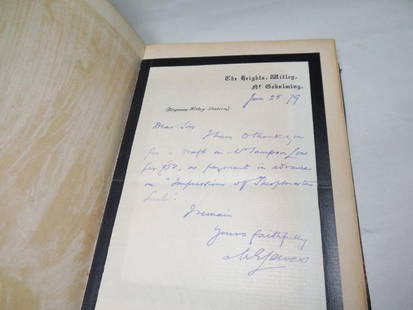 The Heights, Witley,
Nr. Godalming.
Jan 25. 79
(Telegrams Witley Station)
Dear Sir
I have to thank you
for a draft on Mr Sampson Low
for £50, as payment in advance
on "Impressions of Theophrastus
Such"
I remain
Yours faithfully
M E Lewes